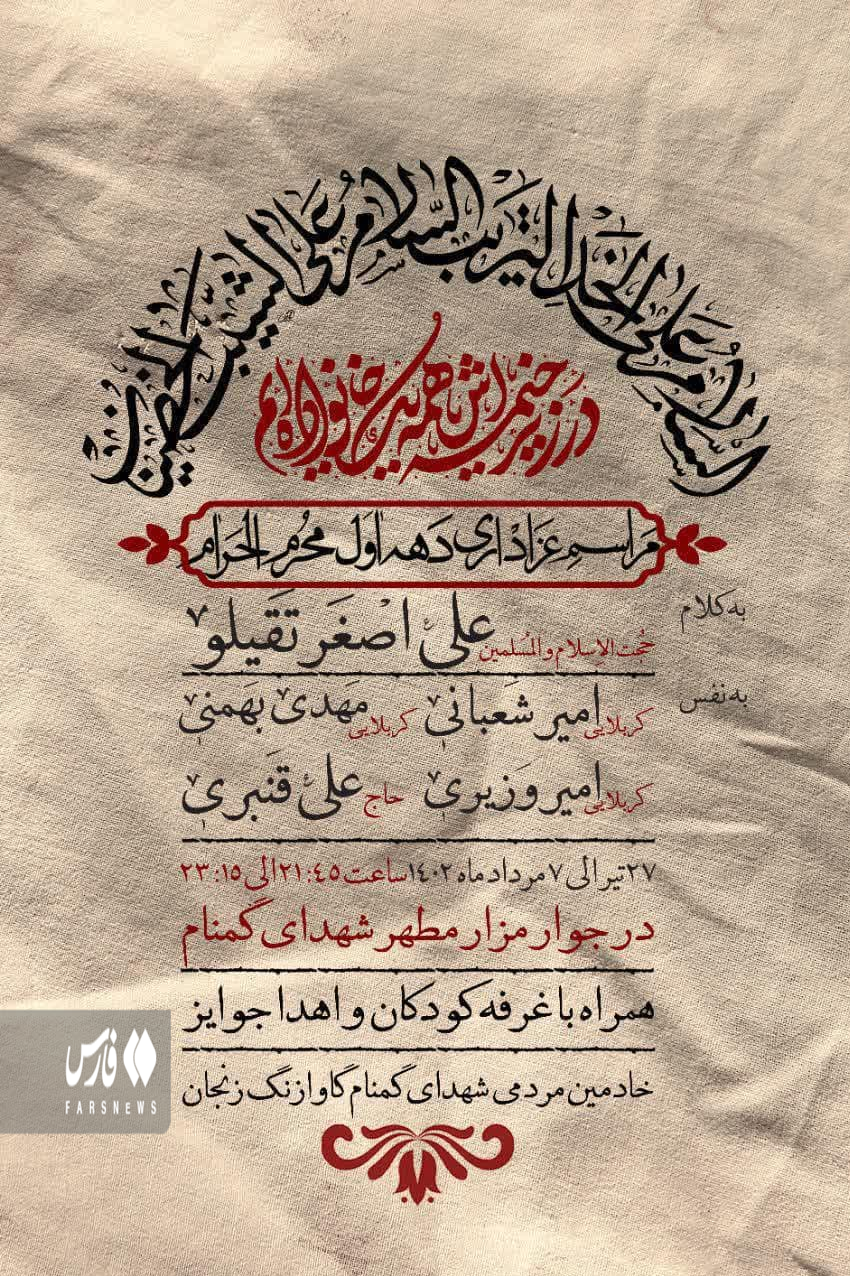 السلام علی الخد التریب السلام علی الشیب الخضیب
در زنجیر غمش همه یک خانواده‌ایم
مراسم عزاداری دهه اول محرم الحرام
به کلام
حجت الاسلام والمسلمین علی اصغر تقیلو
به نفس
کربلایی امیر شعبانی کربلایی مهدی بهمنی
کربلایی امیر وزیری حاج علی قنبری
۲۷ تیر الی ۷ مرداد ماه ۱۴۰۲ ساعت ۲۱:۴۵ الی ۲۳:۱۵
در جوار مزار مطهر شهدای گمنام
همراه با غرفه کودکان و اهدا جوایز
خادمین مردمی شهدای گمنام گاوازنگ زنجان
فارس
FARSNEWS